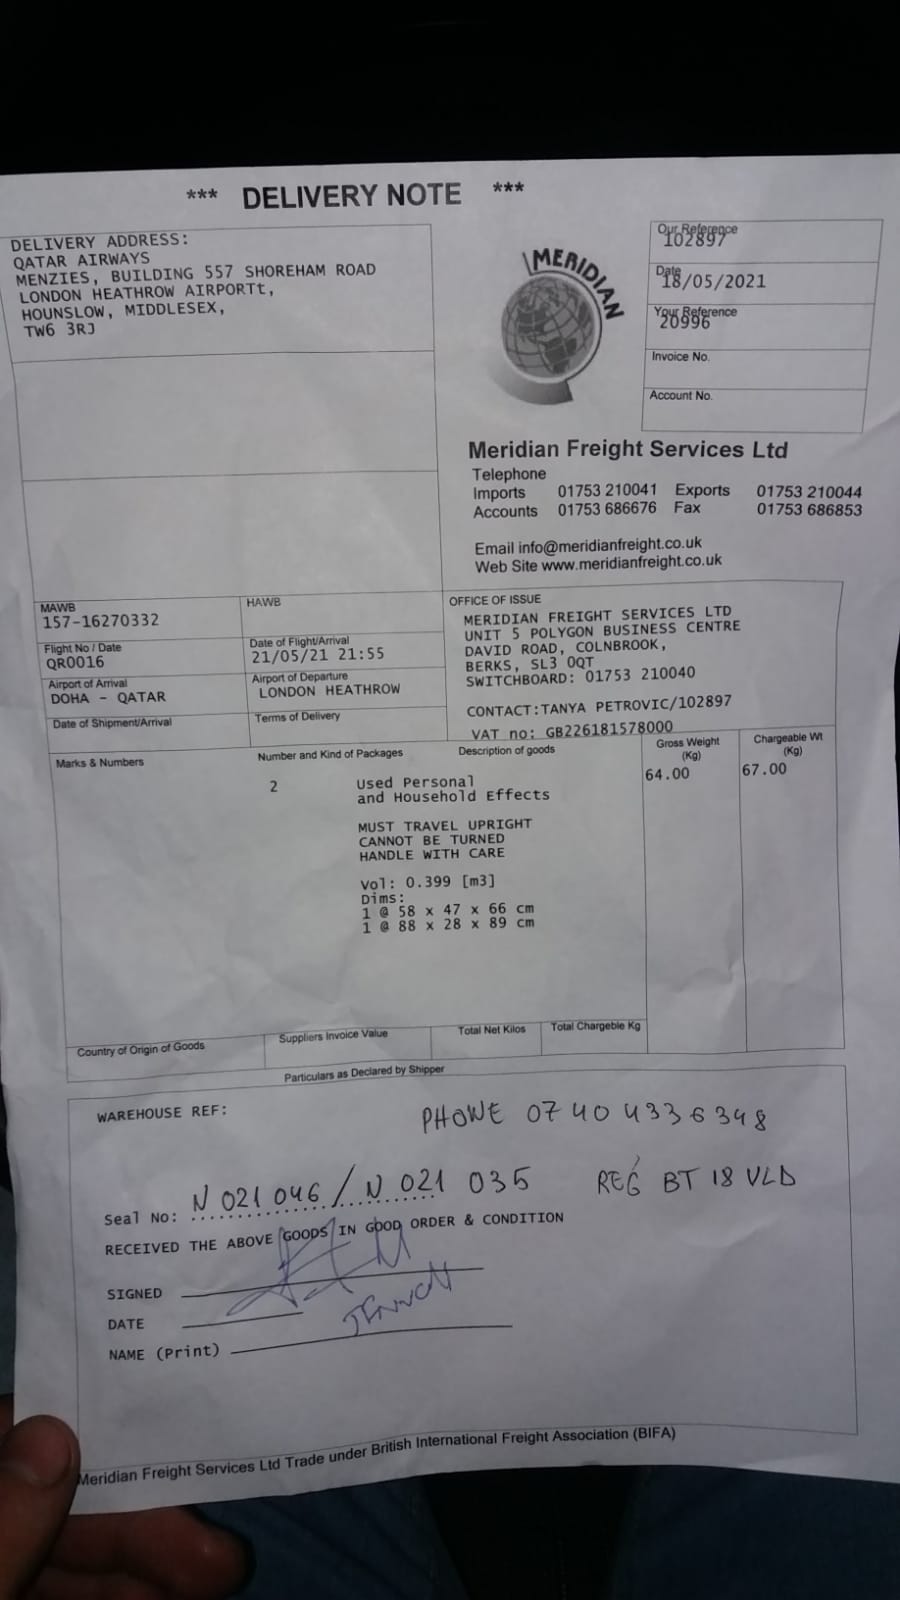 *** DELIVERY NOTE ***
DELIVERY ADDRESS:
QATAR AIRWAYS
MENZIES, BUILDING 557 SHOREHAM ROAD
LONDON HEATHROW AIRPORTt,
HOUNSLOW, MIDDLESEX,
TW6 3RJ
MERIDIAN
Our Reference
102897
Date
18/05/2021
Your Reference
20996
Invoice No.
Account No.
Meridian Freight Services Ltd
Telephone
Imports 01753 210041 Exports 01753 210044
Accounts 01753 686676 Fax 01753 686853
Email info@meridianfreight.co.uk
Web Site www.meridianfreight.co.uk
MAWB
157-16270332
HAWB
Flight No / Date
QR0016
Date of Flight/Arrival
21/05/21 21:55
Airport of Arrival
DOHA - QATAR
Airport of Departure
LONDON HEATHROW
Date of Shipment/Arrival
Terms of Delivery
OFFICE OF ISSUE
MERIDIAN FREIGHT SERVICES LTD
UNIT 5 POLYGON BUSINESS CENTRE
DAVID ROAD, COLNBROOK,
BERKS, SL3 0QT
SWITCHBOARD: 01753 210040
CONTACT:TANYA PETROVIC/102897
VAT no: GB226181578000
Marks & Numbers
Number and Kind of Packages
Description of goods
Gross Weight
(Kg)
Chargeable Wt
(Kg)
2
Used Personal
and Household Effects
64.00
67.00
MUST TRAVEL UPRIGHT
CANNOT BE TURNED
HANDLE WITH CARE
Vol: 0.399 [m3]
Dims:
1 @ 58 x 47 x 66 cm
1 @ 88 x 28 x 89 cm
Country of Origin of Goods
Suppliers Invoice Value
Total Net Kilos
Total Chargeble Kg
Particulars as Declared by Shipper
WAREHOUSE REF:
PHONE 07404336348
Seal No: N 021046 / N 021 035
REG BT 18 VLD
RECEIVED THE ABOVE GOODS IN GOOD ORDER & CONDITION
SIGNED
DATE
NAME (Print)
Meridian Freight Services Ltd Trade under British International Freight Association (BIFA)